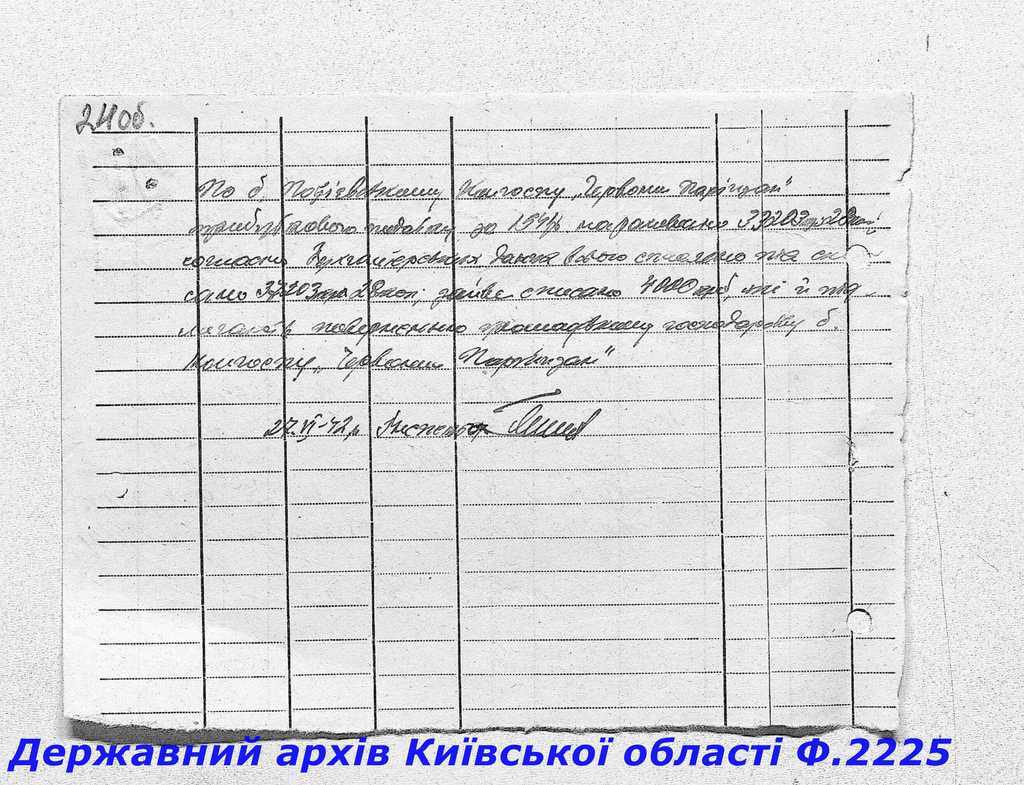 24об.
По б. Колгоспу „Червоний Партизан"
прибуткового податку за 1941р нараховано 33203 крб 28 коп.
согласно Бухгалтерських даних всього сплачено та спи
сано 37203 крб 28 коп. зайве списано 4000 крб, які й під
лягають поверненню громадському господарству б.
Колгоспу „Червоний Партизан"
27.VI-42р Інспектор
Державний архів Київської області Ф.2225